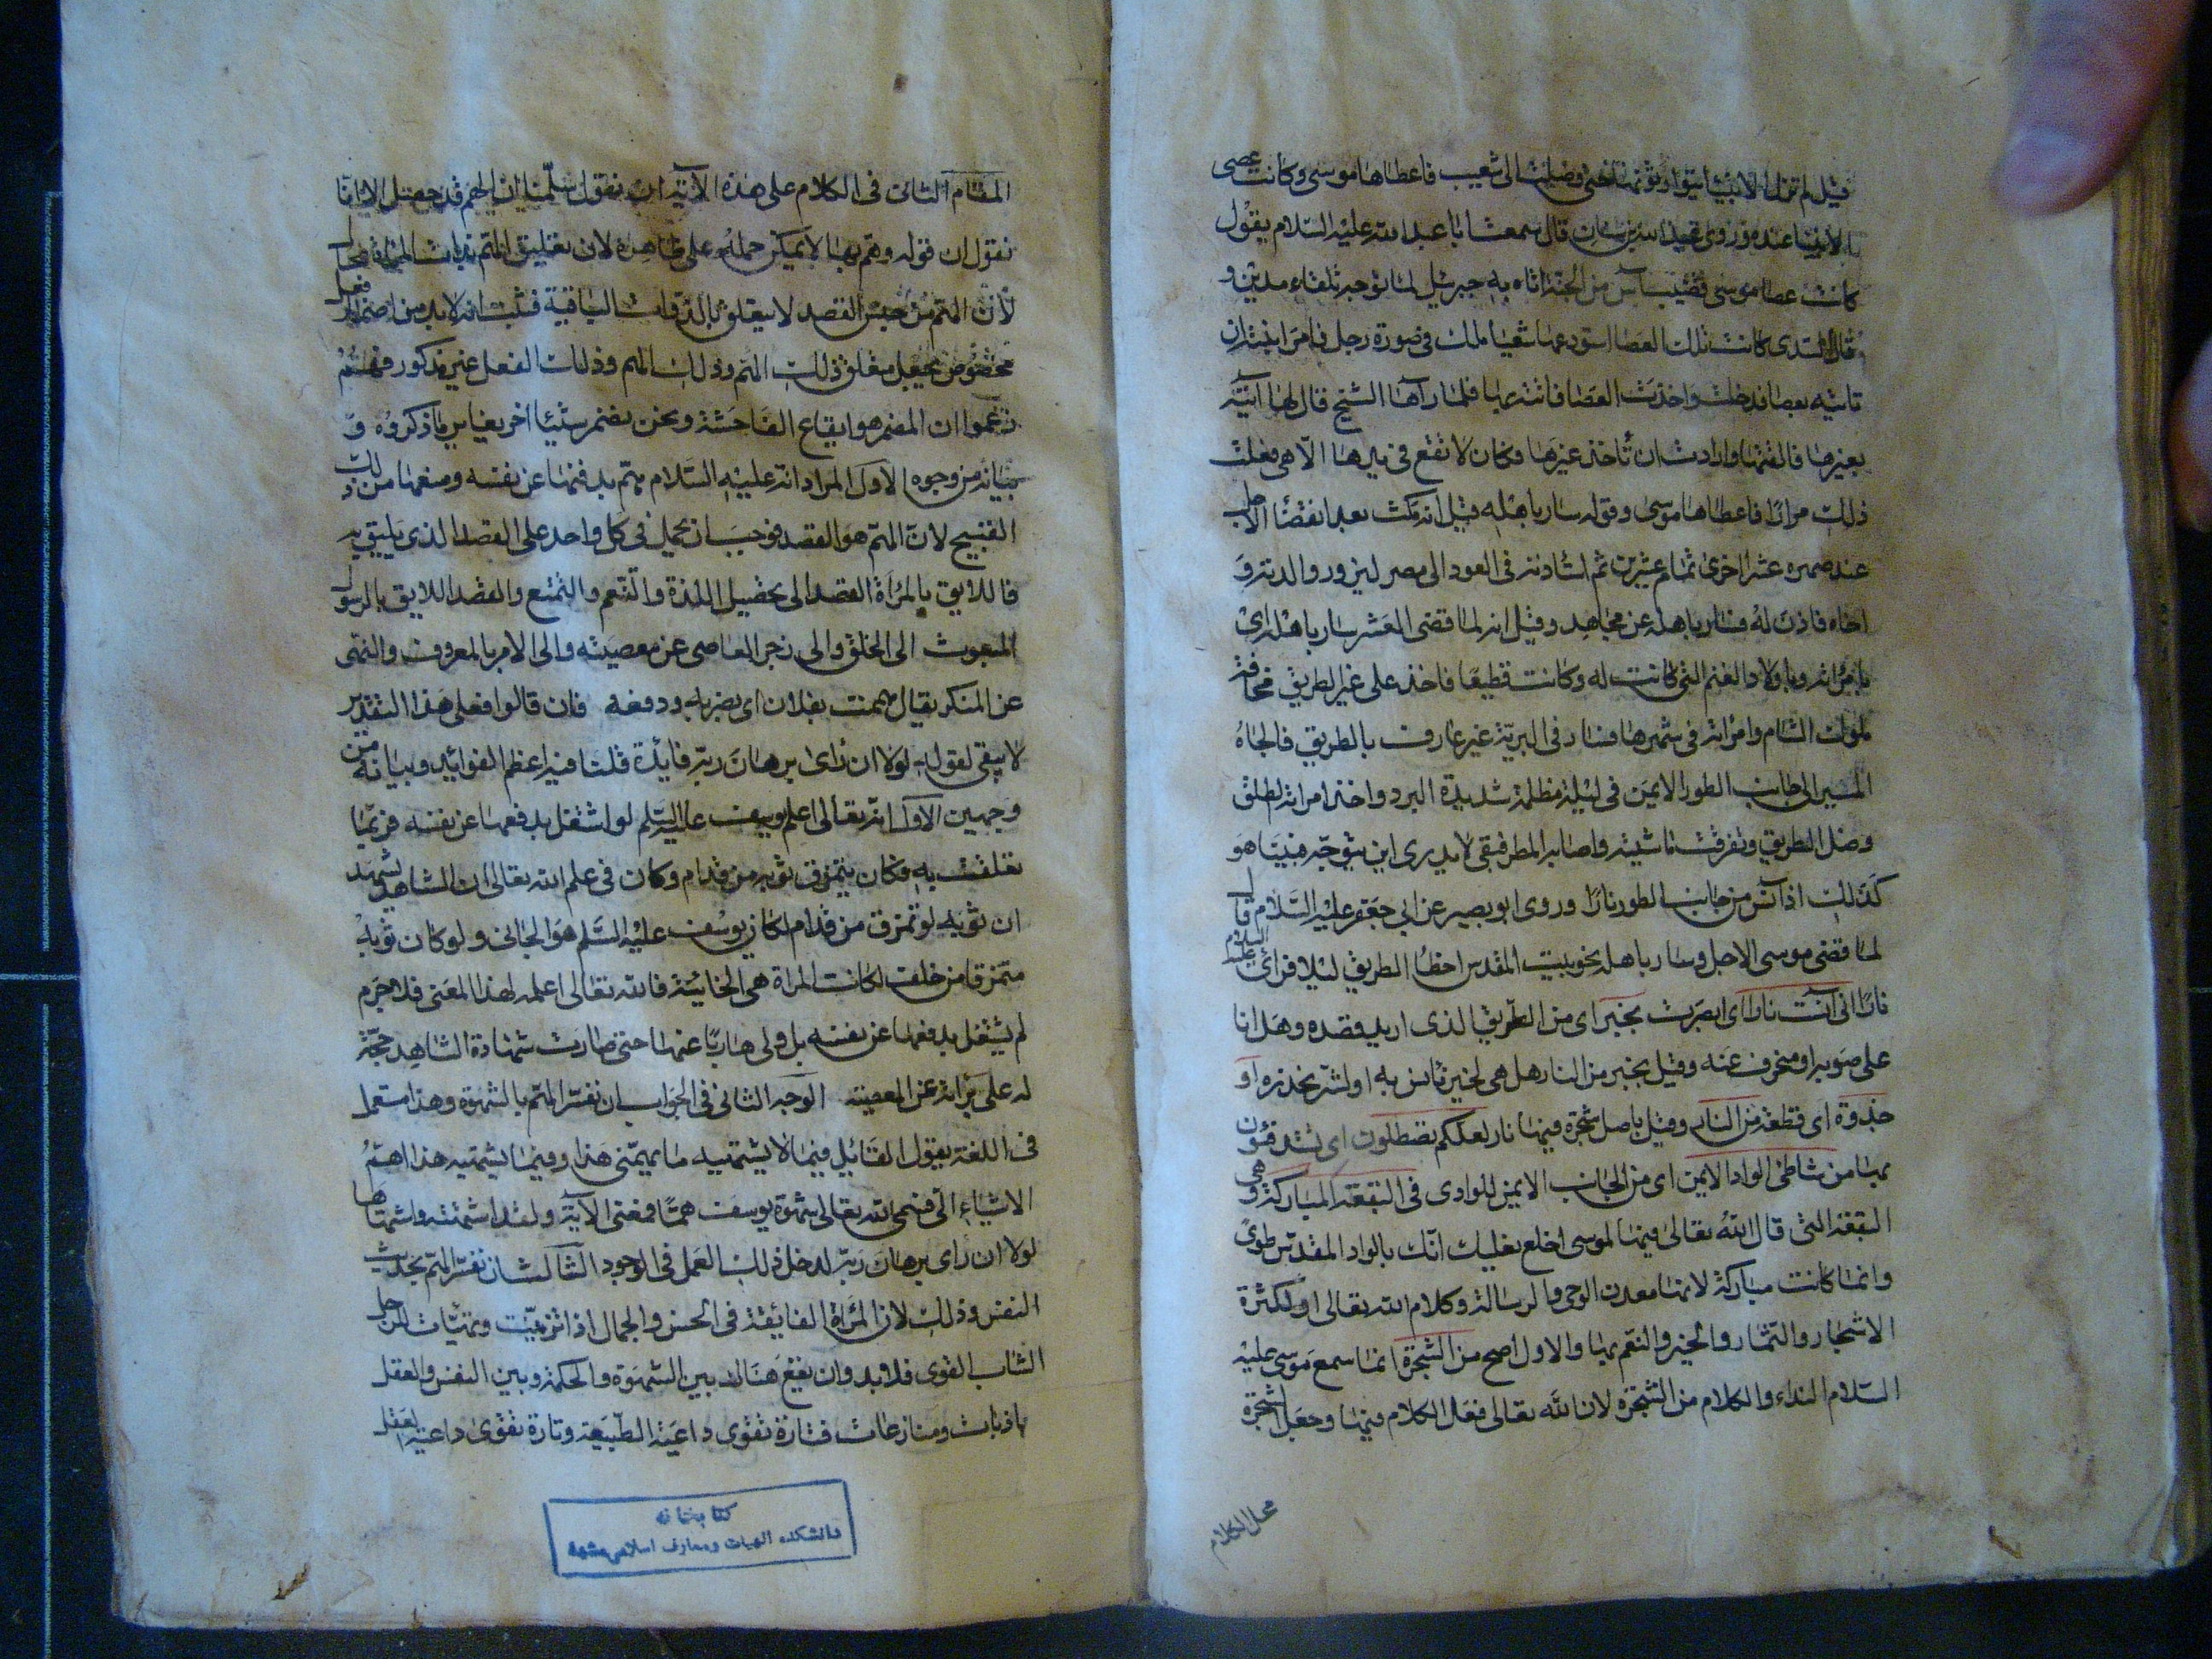 قيل لم تزل الانبياء يتوارثونها حتى وصلت الى شعيب فاعطاها موسى وكانت عصى
الانبياء عنده وروى عبد الله بن سنان قال سمعت ابا عبد الله عليه السلام يقول
كانت عصا موسى قضيب آس من الجنة اتاه به جبرئيل لما توجه تلقاء مدين و
قال السدى كانت تلك العصا استودعها شعيبا ملك فى صورة رجل فامر ابنته ان
تاتيه بعصا فدخلت واخذت العصا فاتته بها فلما رآها الشيخ قال لها ائتيه
بغيرها فالقتها وارادت ان تأخذ غيرها فكان لا تقع فى يدها الا هى فعلت
ذلك مرارا فاعطاها موسى وقوله سار باهله قيل انه مكث بعد انقضا الاجل
عند صهره عشرا اخرى تمام عشرين ثم استاذنه فى العود الى مصر ليزور والدته و
اخاه فاذن له فسار باهله عن مجاهد وقيل انه لما قضى العشر سار باهله اى
بامرأته وباولاد الغنم التى كانت له وكانت قطيعا فاخذ على غير الطريق مخافة
ملوك الشام وامرأته فى شهرها فسار فى البرية غير عارف بالطريق فالجاه
المسير الى جانب الطور الايمن فى ليلة مظلمة شديدة البرد واخذ امراته الطلق
وضل الطريق وتفرقت ماشيته واصابه المطر فبقى لا يدرى اين يتوجه فبينا هو
كذلك اذ آنس من جانب الطور نارا وروى ابو بصير عن ابى جعفر عليه السلام قال
لما قضى موسى الاجل وسار باهله نحو بيت المقدس اخطأ الطريق ليلا فرأى عليه السلام
نارا انى آنست نارا اى ابصرت بخبر اى من الطريق الذى اريد قصده وهل انا
على صوبه او منحرف عنه وقيل بخبر من النار هل هى لخير نأنس به او لشر نحذره او
جذوة اى قطعة من النار وقيل باصل شجرة فيها نار لعلكم تصطلون اى تستدفؤن
بها من شاطئ الواد الايمن اى من الجانب الايمن للوادى فى البقعة المباركة وهى
البقعة التى قال الله تعالى فيها لموسى اخلع نعليك انك بالواد المقدس طوى
وانما كانت مباركة لانها معدن الوحى والرسالة وكلام الله تعالى او لكثرة
الاشجار والثمار والخير والنعم بها والاول اصح من الشجرة انما سمع موسى عليه
السلام النداء والكلام من الشجرة لان الله تعالى فعل الكلام فيها وجعل الشجرة
محل الكلام
المقام الثانى فى الكلام على هذه الآية ان نقول سلمنا ان الهم قد حصل الا انا
نقول ان قوله وهم بها لا يمكن حمله على ظاهره لان تعليق الهم بذات المرأة محال
لأن الهم من جنس القصد لا يتعلق بالذوات الباقية فثبت انه لابد من اضمار فعل
مخصوص يجعل متعلق ذلك الهم وذلك الفعل غير مذكور فهم
زعموا ان المضمر هو ايقاع الفاحشة ونحن نضمر شيئا آخر يغاير ما ذكروه و
بيانه من وجوه الاول المراد انه عليه السلام هم بدفعها عن نفسه ومنعها من ذلك
القبيح لان الهم هو القصد فوجب ان يحمل فى كل واحد على القصد الذى يليق به
فاللايق بالمرأة القصد الى تحصيل اللذة والتنعم والتمتع والقصد اللايق بالرسول
المبعوث الى الخلق والى زجر العاصى عن معصيته والى الامر بالمعروف والنهى
عن المنكر يقال هممت بفلان اى بضربه ودفعه فان قالوا فعلى هذا التقدير
لا يبقى لقوله لولا ان رأى برهان ربه فايدة قلنا فيه اعظم الفوائد وبيانه من
وجهين الاول انه تعالى اعلم يوسف عليه السلم لو اشتغل بدفعها عن نفسه فربما
تعلقت به فكان يتمزق ثوبه من قدام وكان فى علم الله تعالى ان الشاهد يشهد
ان ثوبه لو تمزق من قدام لكان يوسف عليه السلم هو الجانى ولو كان ثوبه
متمزقا من خلف لكانت المراة هى الخائنة فالله تعالى اعلمه لهذا المعنى فلاجرم
لم يشتغل بدفعها عن نفسه بل ولى هاربا عنها حتى صارت شهادة الشاهد حجة
له على براته عن المعصية الوجه الثانى فى الجواب ان نفسر الهم بالشهوة وهذا مستعمل
فى اللغة يقول القائل فيما لا يشتهيه ما يهمنى هذا وفيما يشتهيه هذا اهم
الاشياء الى فسمى الله تعالى شهوة يوسف هما فمعنى الآية ولقد اشتهته واشتهاها
لولا ان رأى برهان ربه لدخل ذلك العمل فى الوجود الثالث ان نفسر الهم بحديث
النفس وذلك لان المرأة الفائقة فى الحسن والجمال اذا تزينت وتهيات للرجل
الشاب القوى فلابد وان يقع هناك بين الشهوة والحكمة وبين النفس والعقل
مجاذبات ومنازعات فتارة تقوى داعية الطبيعة وتارة تقوى داعية العقل
كتابخانه
دانشكده الهيات ومعارف اسلامى مشهد